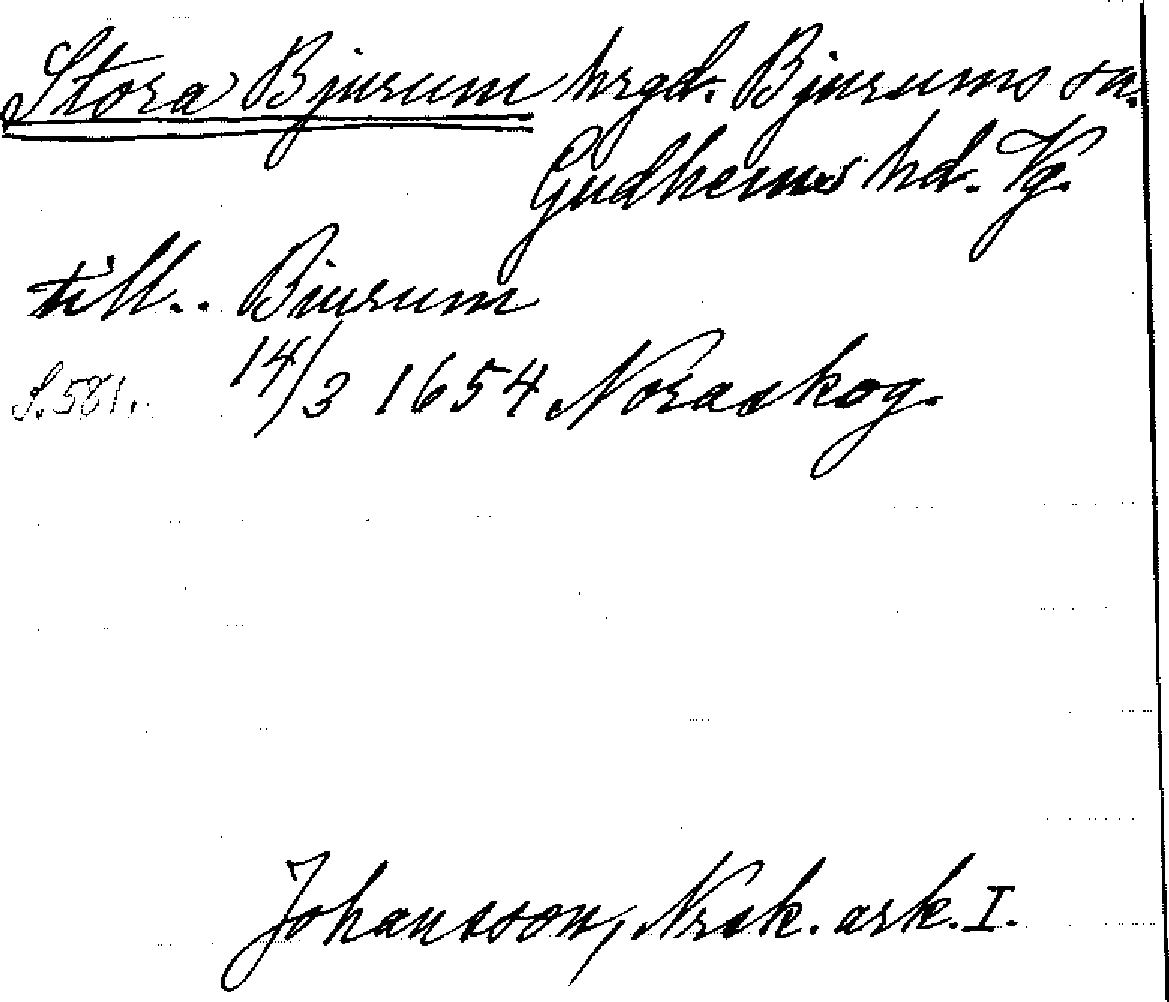 Stora Bjurum hrgd. Bjurums sn.
Gudhems hd. Vg.
till.. Biurum
S. 581. 14/3 1654 Noraskog.
Johansson, Nrsk. ark. I.